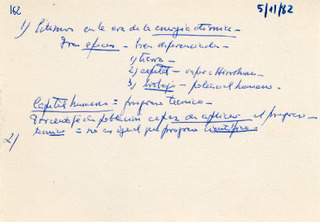 162
5/11/82
1) Estamos en la era de la energía atómica -
Tres épocas - bien diferenciadas
1) tierra
2) capital - vapor a Hiroshima
3) trabajo - potencial humano.
Capital humano = progreso técnico -
Porcentaje de población capaz de aplicar el progreso
técnico = no es igual que progreso científico
2)